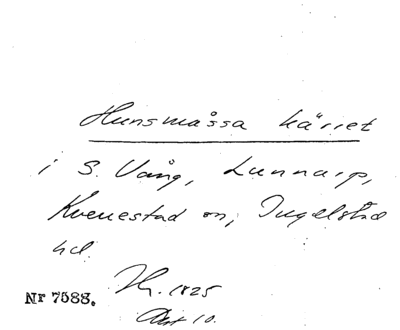 Hunsmåssa kärret
i S. Vång, Lunnarp,
Kverrestad sn, Ingelstad
hd.
Nr 7583. Hr. 1825
Akt 10.